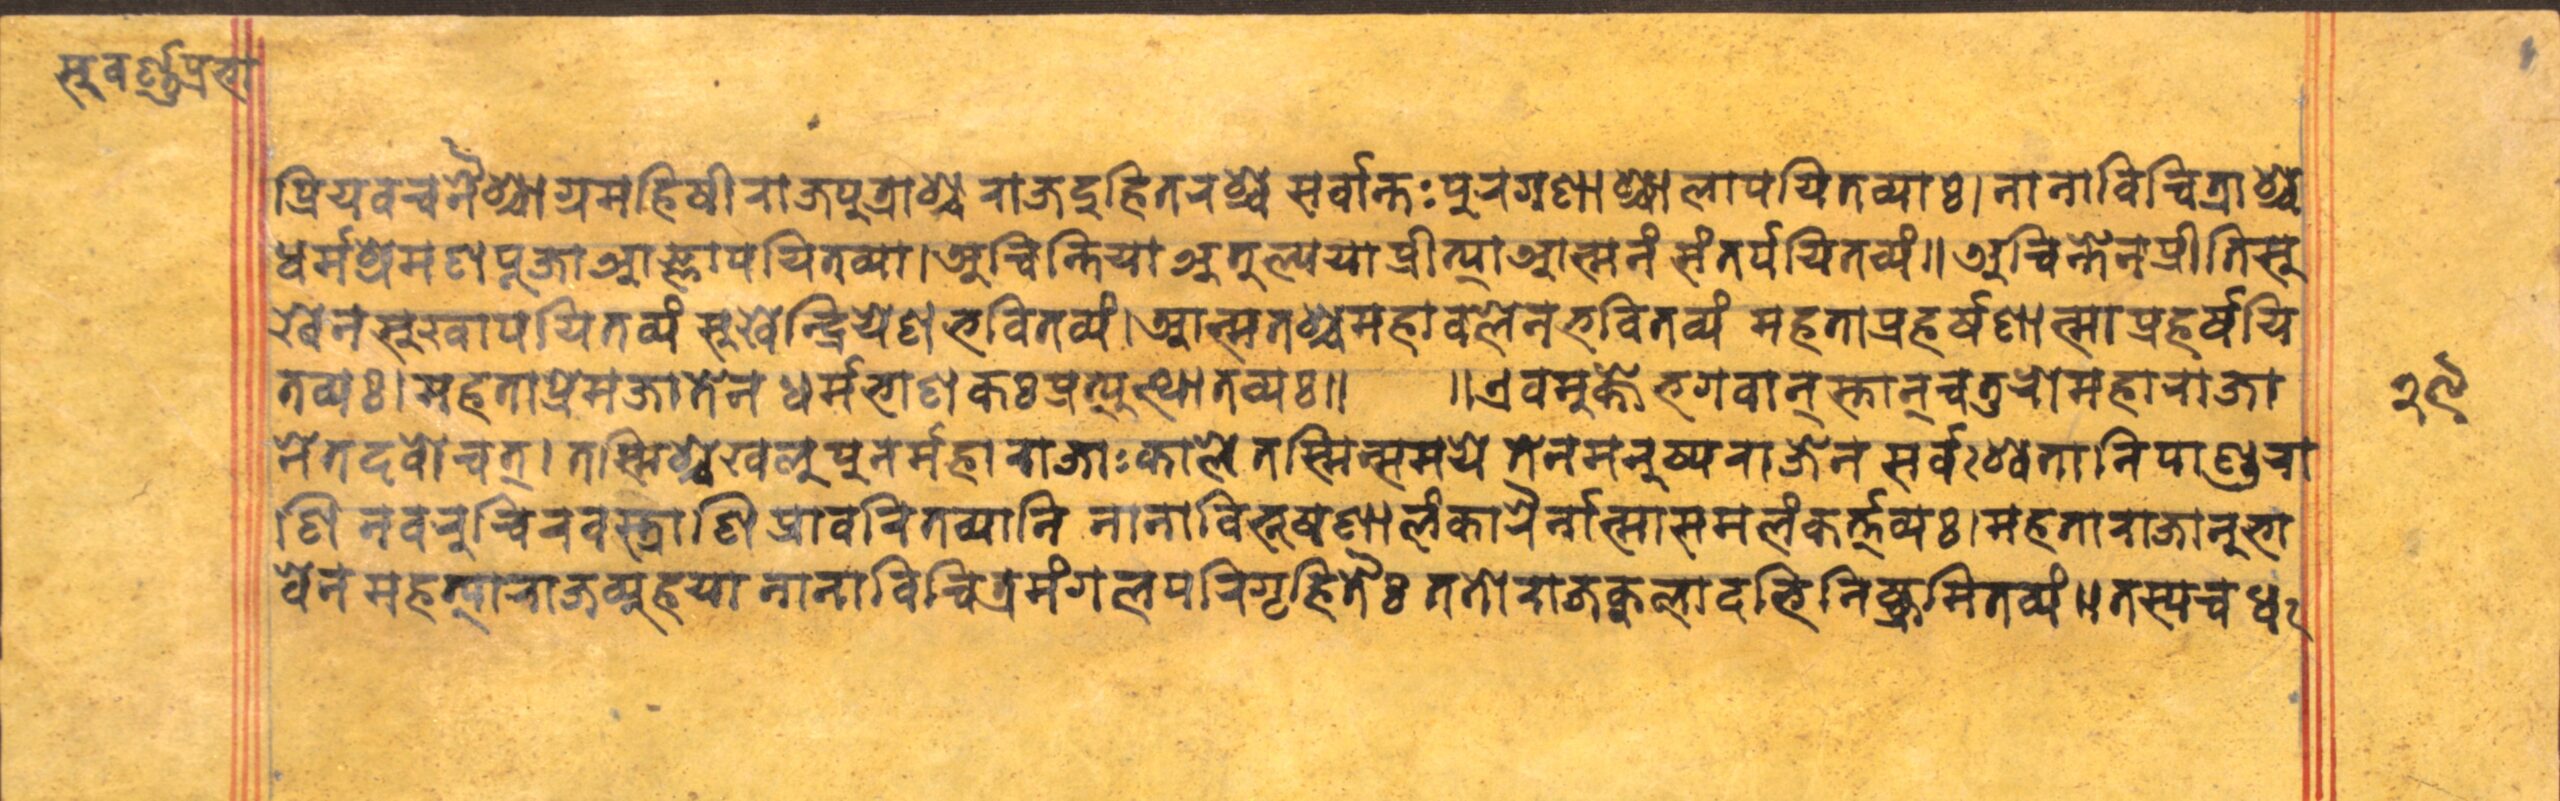 सुवर्ण्णप्रभा
प्रियवचनैश्चाग्रमहिषी राजपुत्राश्च राजदुहितरश्च सर्वान्तःपुरगणाश्चालापयितव्याः। नानाविचित्राश्च
धर्मश्रमणपूजाआज्ञापयितव्या। अचिन्तिया अतुल्ययाप्रीत्याआत्मनं संतर्पयितव्यं॥ अचिन्तेनप्रीतिसु
खेनसुखापयितव्यं सुखेन्द्रियेण भवितव्यं। आत्मतश्चमहाबलेनभवितव्यं महताप्रहर्षणात्माप्रहर्षयि
तव्यः। महताप्रेमजातेन धर्मभाणकःप्रत्युत्थातव्यः॥ ॥एवमुक्ते भगवान् स्तान् चतुरोमहाराजा
नेतदवोचत्। तस्मिंश्चखलुपुनर्महाराजाःकाले तस्मिन्समये तेनमनुष्यराजेन सर्वःश्वेतानिपाण्डुरा
णि नवरुचिरवस्त्राणि प्रावरितव्यानि नानाविभूषणालंकारैर्नात्मासमलंकर्त्तव्यः। महताराजानुभा
वेन महत्याराजव्यूहया नानाविचित्रमंगलपरिगृहितैः ततोराजकुलादभिनिष्क्रमितव्यं॥ तस्यच ध
२९